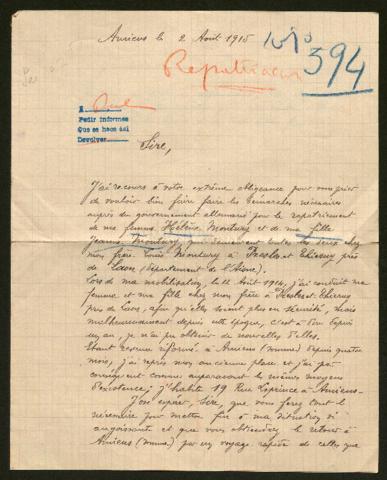 Amiens le 2 Août 1915
Nº 394
Repatriacion
Pedir informes
Que se hace así
Devolver
Sire,
J'ai recours à votre extrême obligeance pour vous prier
de vouloir bien faire faire les démarches nécessaires
auprès du gouvernement allemand pour le rapatriement
de ma femme Hélène Montury et de ma fille
Jeanne Montury, qui demeurent toutes les deux chez
mon frère Louis Montury à Presles et Thierny près
de Laon (département de l'Aisne).
Lors de ma mobilisation, le 12 Août 1914, j'ai conduit ma
femme et ma fille chez mon frère à Presles et Thierny
près de Laon, afin qu'elles soient plus en sécurité, mais
malheureusement depuis cette époque, c'est à dire depuis
un an, je n'ai pu obtenir de nouvelles d'elles.
Etant revenu réformé à Amiens (Somme) depuis quatre
mois, j'ai repris mon ancienne place et j'ai par
conséquent comme auparavant les mêmes moyens
d'existence; j'habite 19 Rue Leprince à Amiens.
J'ose espérer, Sire, que vous ferez tout le
nécessaire pour mettre fin à ma situation si
angoissante et que vous obtiendrez le retour à
Amiens (Somme) par un voyage rapide de celles que